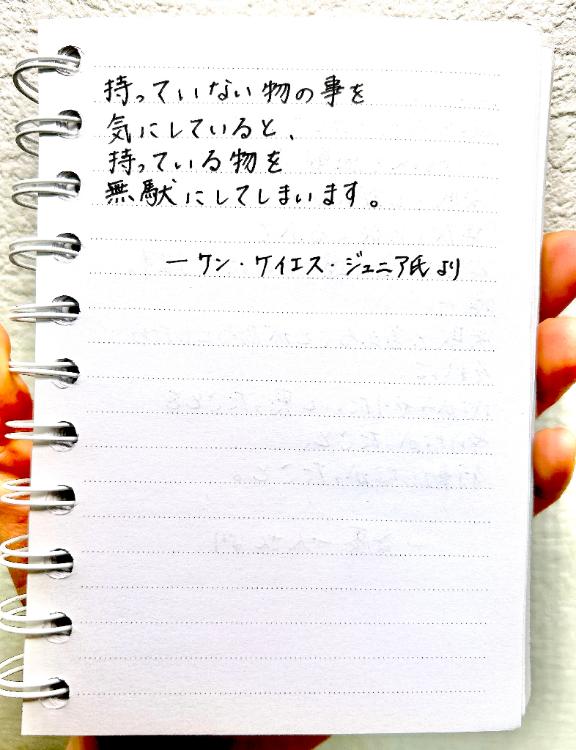 持っていない物の事を
気にしていると、
持っている物を
無駄にしてしまいます。
ーケン・ケイエス・ジュニア氏より